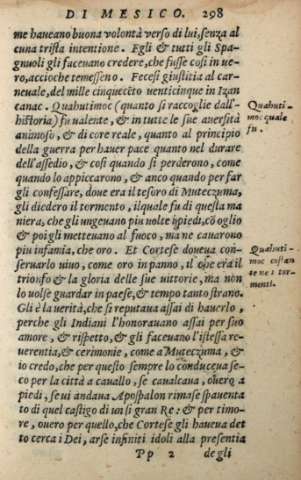 DI MESICO. 298
me haueano buona volontà verso di lui, senza al
cuna trista intentione. Egli & tutti gli Spa-
gnuoli gli faceuano credere, che fusse cosi in ue-
ro, accioche temesseno. Fecesi giustitia al car-
neuale, del mille cinquecẽto uenticinque in Izan
canac. Quahutimoc (quanto si raccoglie dall'-
historia) fu ualente, & in tutte le sue auersità
animoso, & di core reale, quanto al principio
della guerra per hauer pace quanto nel durare
dell'assedio, & cosi quando si perderono, come
quando lo appiccarono, & anco quando per far
gli confessare, doue era il tesoro di Muteczuma,
gli diedero il tormento, ilquale fu di questa ma
niera, che gli ungeuano piu uolte i piedi, cõ oglio
& poi gli metteuano al fuoco, ma ne cauarono
piu infamia, che oro. Et Cortese doueua con-
seruarlo uiuo, come oro in panno, il che era il
trionfo & la gloria delle sue uittorie, ma non
lo uolse guardar in paese, & tempo tanto strano.
Gli è la uerità, che si reputaua assai di hauerlo,
perche gli Indiani l'honorauano assai per suo
amore, & rispetto, & gli faceuano l'istessa re-
uerentia, & cerimonie, come a Muteczuma, &
io credo, che per questo sempre lo conduceua se-
co per la città a cauallo, se caualcaua, ouero a
piedi, se ui andaua Apospalon rimase spauenta
to di quel castigo di un si gran Re: & per timo-
re, ouero per quello, che Cortese gli haueua det
to cerca i Dei, arse infiniti idoli alla presentia
Pp 2 de gli
Quahuti-
moc quale
fu.
Quahuti-
moc costan
te ne i tor-
menti.